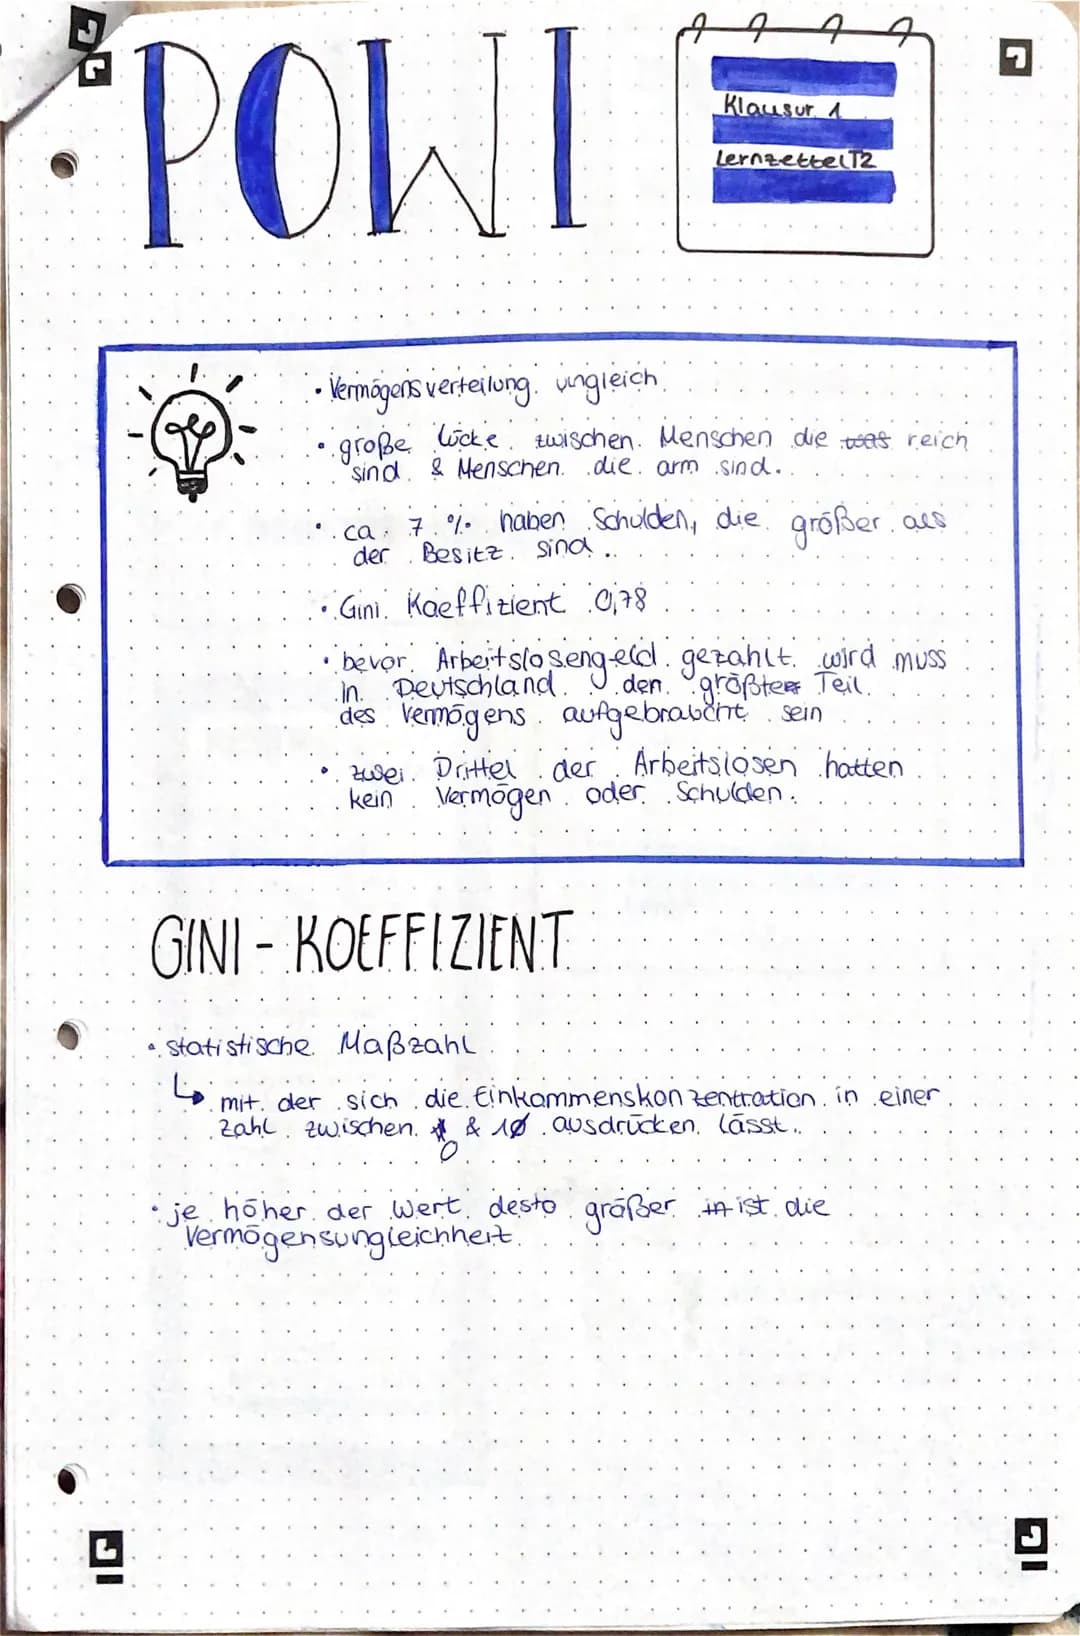 POWI
Klausur 1
Lernzettel T2
• Vermögensverteilung ungleich
• große Lücke zwischen Menschen die was reich
sind & Menschen die arm sind.
• ca. 7 % haben Schulden, die größer als
der Besitz sind.
• Gini Koeffizient 0,78
• bevor Arbeitslosengeld gezahlt wird muss
in Deutschland den größten Teil
des Vermögens aufgebraucht sein
• zwei Drittel der Arbeitslosen hatten
kein Vermögen oder Schulden.
GINI - KOEFFIZIENT
• statistische Maßzahl
↳ mit der sich die Einkommenskonzentration in einer
Zahl zwischen 0 & 1 ausdrücken lässt.
• je höher der Wert desto größer in ist die
Vermögensungleichheit